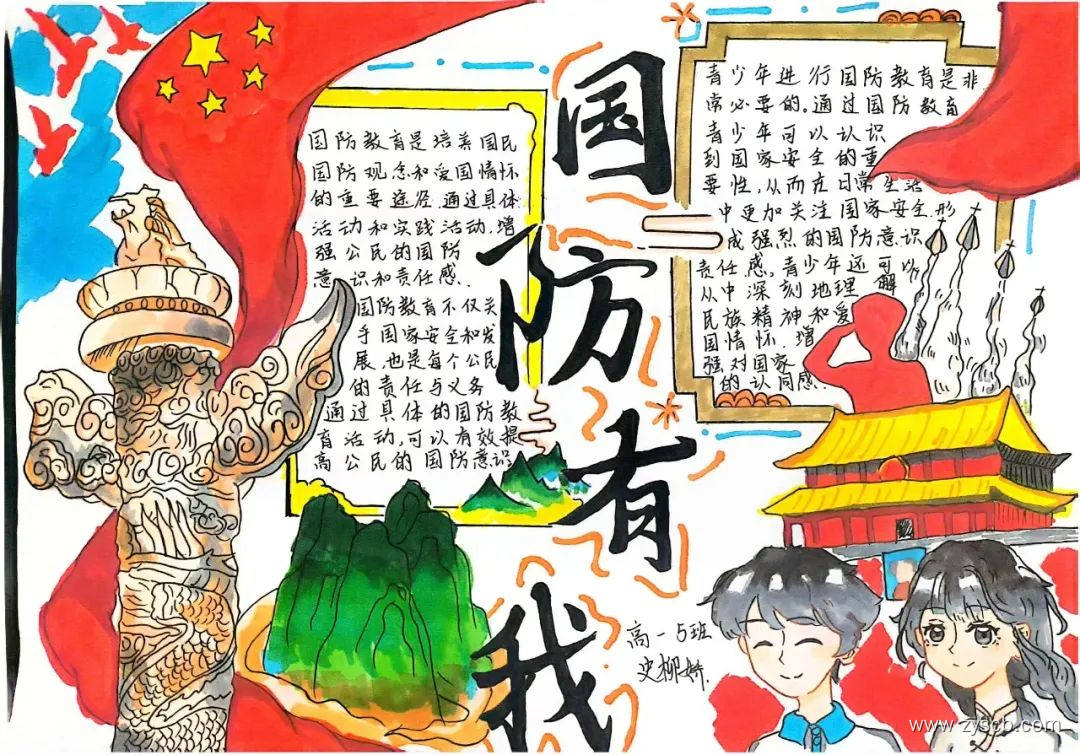 国防有我
国防教育是培养国民
国防观念和爱国情怀
的重要途径.通过具体
活动和实践活动,增
强公民的国防
意识和责任感.
国防教育不仅关
乎国家安全和发
展,也是每个公民
的责任与义务
通过具体的国防教
育活动,可以有效提
高公民的国防意识
青少年进行国防教育是非
常必要的.通过国防教育
青少年可以认识
到国家安全的重
要性,从而在日常生活
中更加关注国家安全.形
成强烈的国防意识
责任感,青少年还可以
从中深刻地理解
民族精神和爱
国情怀.增
强对国家
的认同感.
高一5班
史柳娇.
www.zyscb.com